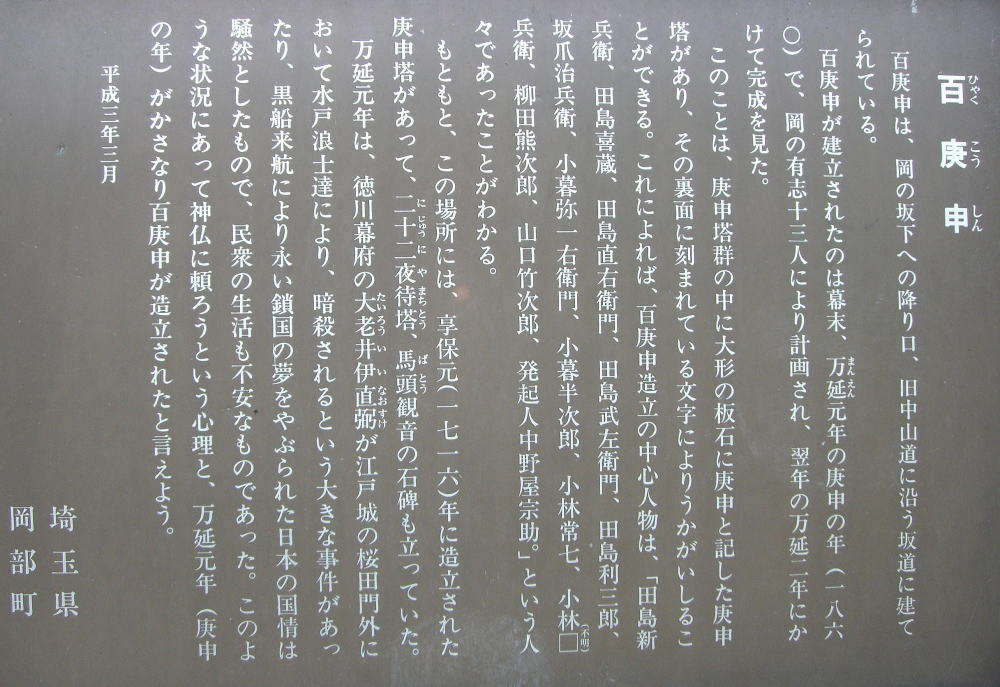 百庚申
ひゃくこうしん
百庚申は、岡の坂下への降り口、旧中山道に沿う坂道に建て
られている。
百庚申が建立されたのは幕末、万延元年の庚申の年(一八六
まんえん
〇)で、岡の有志十三人により計画され、翌年の万延二年にか
けて完成を見た。
このことは、庚申塔群の中に大形の板石に庚申と記した庚申
塔があり、その裏面に刻まれている文字によりうかがいしるこ
とができる。これによれば、百庚申造立の中心人物は、「田島新
兵衛、田島喜蔵、田島直右衛門、田島武左衛門、田島利三郎、
坂爪治兵衛、小暮弥一右衛門、小暮半次郎、小林常七、小林□
(不明)
兵衛、柳田熊次郎、山口竹次郎、発起人中野屋宗助。」という人
々であったことがわかる。
もともと、この場所には、享保元(一七一六)年に造立された
庚申塔があって、二十二夜待塔、馬頭観音の石碑も立っていた。
にじゅうにやまちとう ばとう
万延元年は、徳川幕府の大老井伊直弼が江戸城の桜田門外に
たいろういいなおすけ
おいて水戸浪士達により、暗殺されるという大きな事件があっ
たり、黒船来航により永い鎖国の夢をやぶられた日本の国情は
騒然としたもので、民衆の生活も不安なものであった。このよ
うな状況にあって神仏に頼ろうという心理と、万延元年(庚申
の年)がかさなり百庚申が造立されたと言えよう。
平成三年三月
埼玉県
岡部町